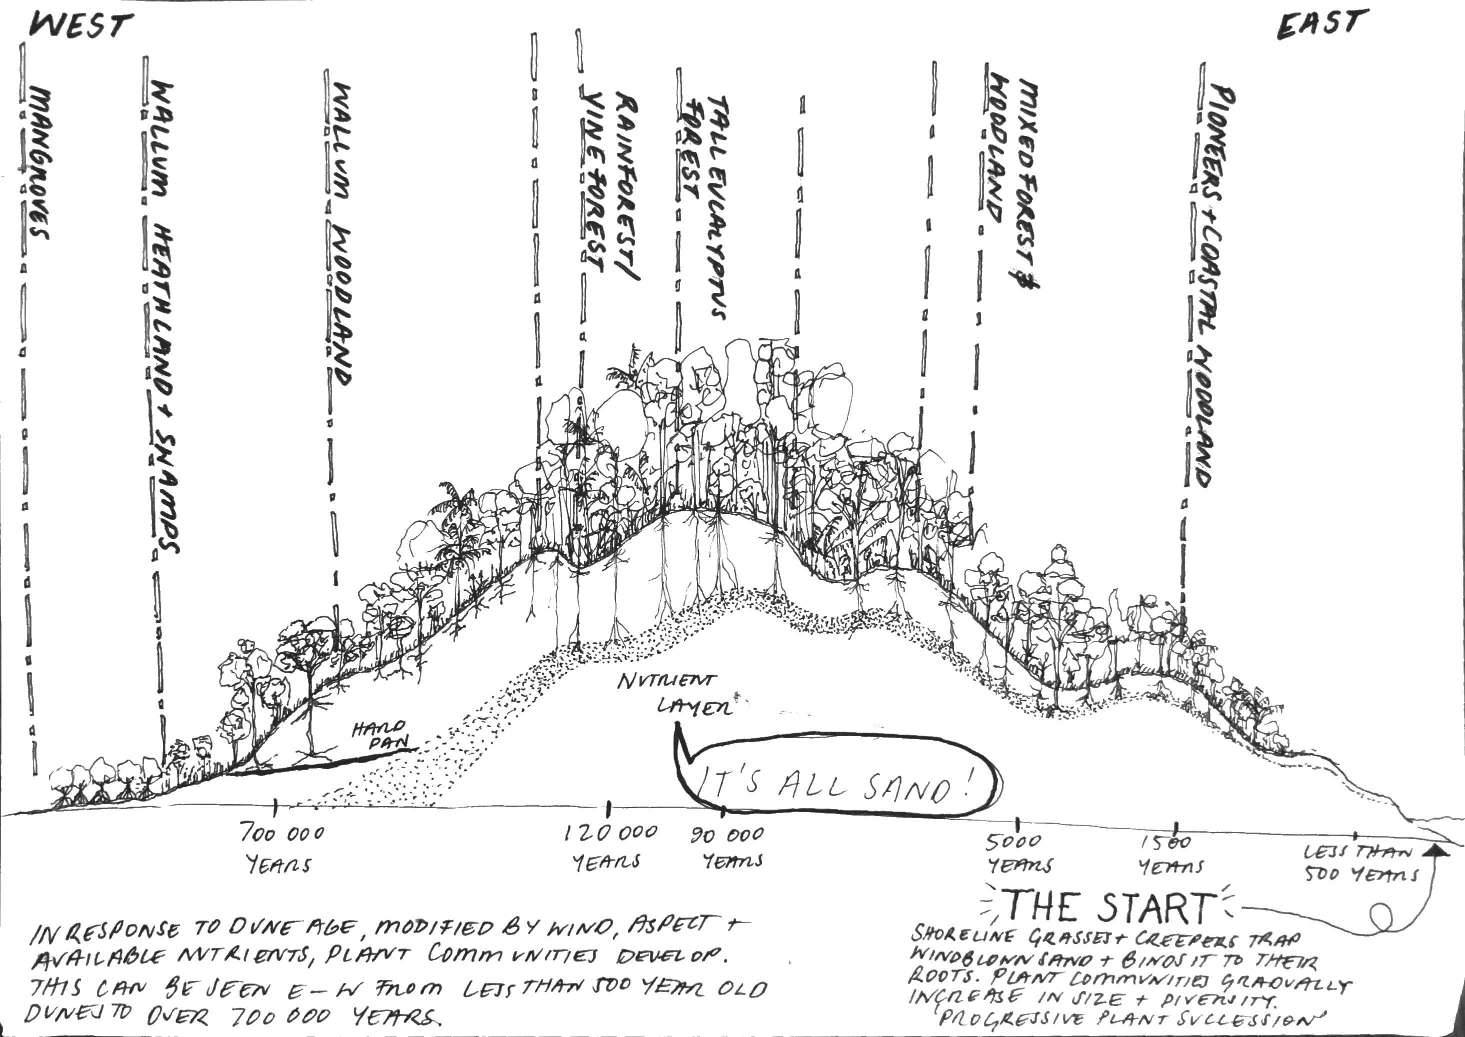 WEST
EAST
MANGROVES
WALLUM HEATHLAND + SWAMPS
WALLUM WOODLAND
RAINFOREST/
VINE FOREST
TALL EUCALYPTUS
FOREST
MIXED FOREST &
WOODLAND
PIONEERS + COASTAL WOODLAND
NUTRIENT
LAYER
HARD
PAN
IT'S ALL SAND!
700 000
YEARS
120 000
YEARS
90 000
YEARS
5000
YEARS
1500
YEARS
LESS THAN
500 YEARS
IN RESPONSE TO DUNE AGE, MODIFIED BY WIND, ASPECT +
AVAILABLE NUTRIENTS, PLANT COMMUNITIES DEVELOP.
THIS CAN BE SEEN E-W FROM LESS THAN 500 YEAR OLD
DUNES TO OVER 700 000 YEARS.
THE START
SHORELINE GRASSES + CREEPERS TRAP
WINDBLOWN SAND + BINDS IT TO THEIR
ROOTS. PLANT COMMUNITIES GRADUALLY
INCREASE IN SIZE + DIVERSITY.
"PROGRESSIVE PLANT SUCCESSION"